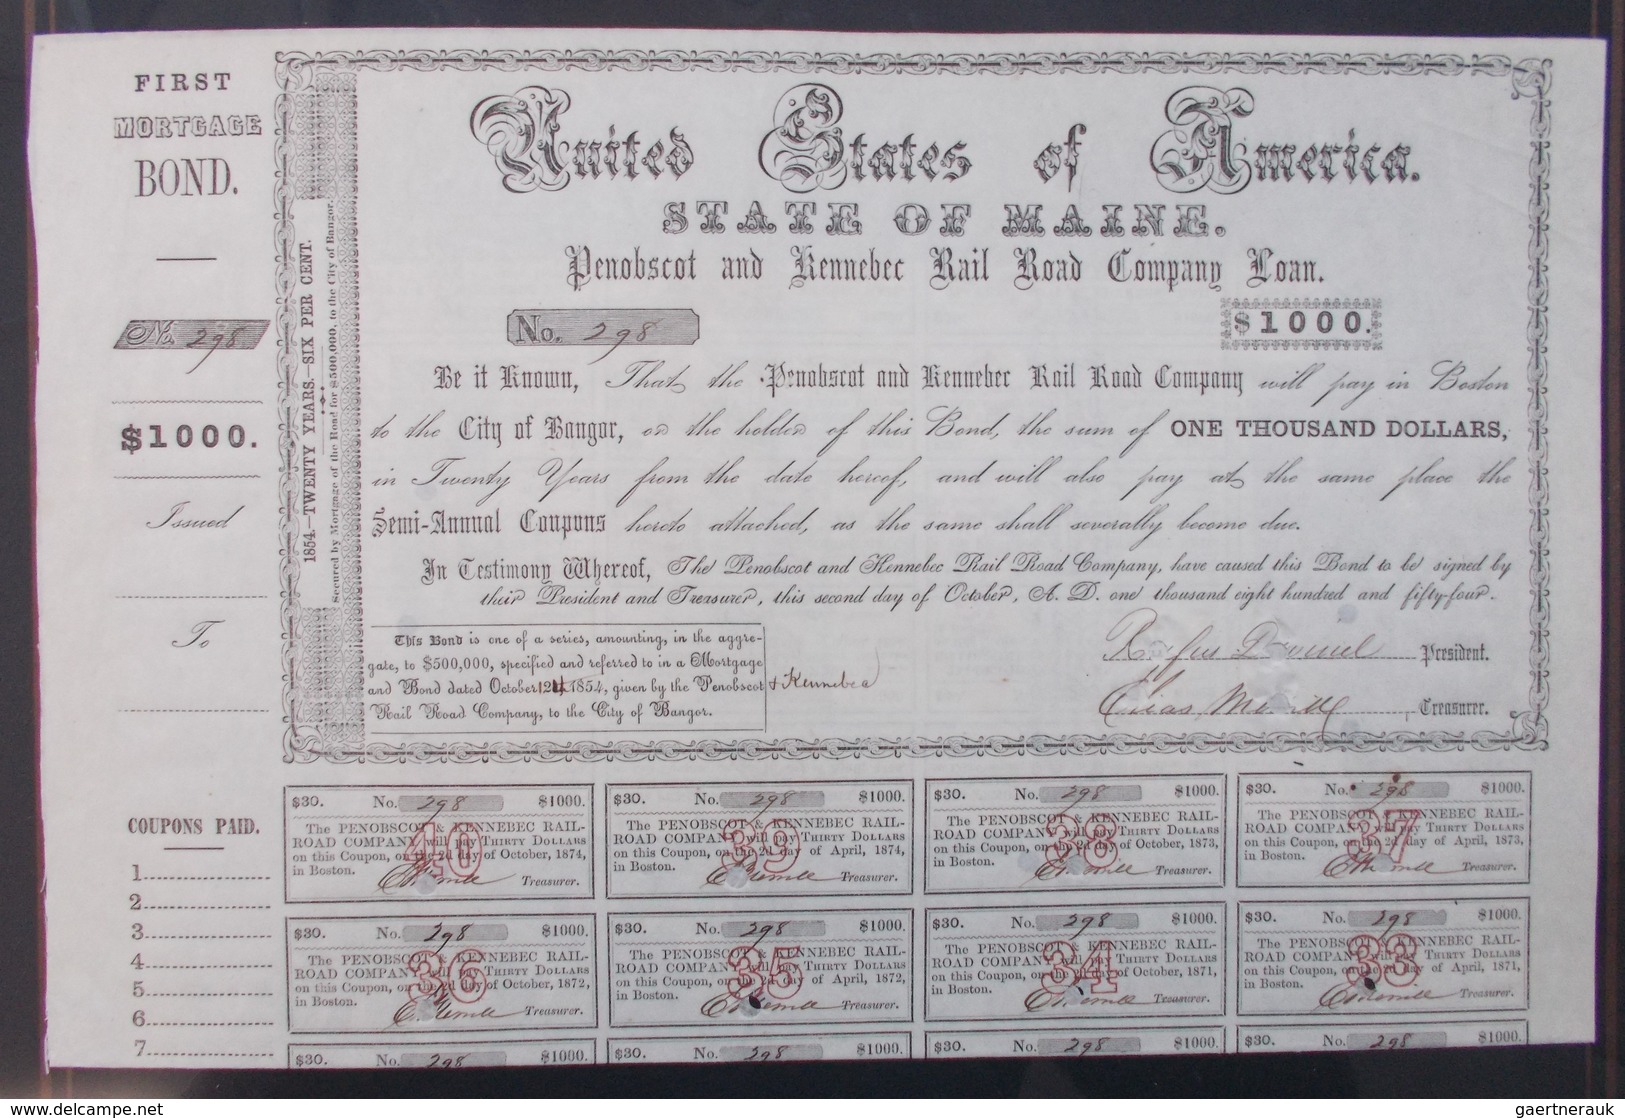 FIRST
MORTGAGE
BOND.
No. 298
$1000.
Issued
To
COUPONS PAID.
1
2
3
4
5
6
7
1854.—TWENTY YEARS.—SIX PER CENT.
Secured by Mortgage of the Road for $500,000, to the City of Bangor.
United States of America.
STATE OF MAINE.
Penobscot and Kennebec Rail Road Company Loan.
No. 298
$1000.
Be it Known, That the Penobscot and Kennebec Rail Road Company will pay in Boston
to the City of Bangor, or the holder of this Bond, the sum of ONE THOUSAND DOLLARS,
in Twenty Years from the date hereof, and will also pay at the same place the
Semi-Annual Coupons hereto attached, as the same shall severally become due.
In Testimony Whereof, The Penobscot and Kennebec Rail Road Company, have caused this Bond to be signed by
their President and Treasurer, this second day of October, A. D. one thousand eight hundred and fifty-four.
This Bond is one of a series, amounting, in the aggre-
gate, to $500,000, specified and referred to in a Mortgage
and Bond dated October 1854, given by the Penobscot & Kennebec
Rail Road Company, to the City of Bangor.
Rufus President.
Elias Merrill Treasurer.
$30. No. 298 $1000.
The PENOBSCOT & KENNEBEC RAIL-
ROAD COMPANY will pay THIRTY DOLLARS
on this Coupon, on the 2d day of October, 1874,
in Boston.
40
E Merrill Treasurer.
$30. No. 298 $1000.
The PENOBSCOT & KENNEBEC RAIL-
ROAD COMPANY will pay THIRTY DOLLARS
on this Coupon, on the 2d day of April, 1874,
in Boston.
39
E Merrill Treasurer.
$30. No. 298 $1000.
The PENOBSCOT & KENNEBEC RAIL-
ROAD COMPANY will pay THIRTY DOLLARS
on this Coupon, on the 2d day of October, 1873,
in Boston.
38
E Merrill Treasurer.
$30. No. 298 $1000.
The PENOBSCOT & KENNEBEC RAIL-
ROAD COMPANY will pay THIRTY DOLLARS
on this Coupon, on the 2d day of April, 1873,
in Boston.
37
E Merrill Treasurer.
$30. No. 298 $1000.
The PENOBSCOT & KENNEBEC RAIL-
ROAD COMPANY will pay THIRTY DOLLARS
on this Coupon, on the 2d day of October, 1872,
in Boston.
36
E Merrill Treasurer.
$30. No. 298 $1000.
The PENOBSCOT & KENNEBEC RAIL-
ROAD COMPANY will pay THIRTY DOLLARS
on this Coupon, on the 2d day of April, 1872,
in Boston.
35
E Merrill Treasurer.
$30. No. 298 $1000.
The PENOBSCOT & KENNEBEC RAIL-
ROAD COMPANY will pay THIRTY DOLLARS
on this Coupon, on the 2d day of October, 1871,
in Boston.
34
E Merrill Treasurer.
$30. No. 298 $1000.
The PENOBSCOT & KENNEBEC RAIL-
ROAD COMPANY will pay THIRTY DOLLARS
on this Coupon, on the 2d day of April, 1871,
in Boston.
33
E Merrill Treasurer.
$30. No. 298 $1000.
$30. No. 298 $1000.
$30. No. 298 $1000.
$30. No. 298 $1000.
www.delcampe.net
gaertnerauk